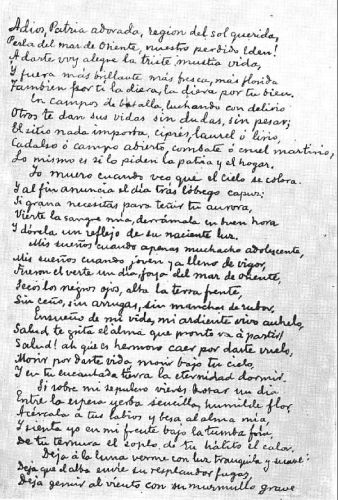 Adios, Patria adorada, region del sol querida,
Perla del mar de Oriente, nuestro perdido Eden!
A darte voy alegre la triste mustia vida,
Y fuera más brillante más fresca, más florida
Tambien por tí la diera, la diera por tu bien.
En campos de batalla, luchando con delirio
Otros te dan sus vidas sin dudas, sin pesar;
El sitio nada importa, ciprés, laurel ó lirio,
Cadalso ó campo abierto, combate ó cruel martirio,
Lo mismo es si lo piden la patria y el hogar.
Yo muero cuando veo que el cielo se colora
Y al fin anuncia el día tras lóbrego capuz;
Si grana necesitas para teñir tu aurora,
Vierte la sangre mía, derrámala en buen hora
Y dórela un reflejo de su naciente luz.
Mis sueños cuando apenas muchacho adolescente,
Mis sueños cuando joven ya lleno de vigor,
Fueron el verte un día, joya del mar de oriente,
Secos los negros ojos, alta la tersa frente,
Sin ceño, sin arrugas, sin manchas de rubor.
Ensueño de mi vida, mi ardiente vivo anhelo,
Salud te grita el alma que pronto va á partir!
Salud! ah que es hermoso caer por darte vuelo,
Morir por darte vida, morir bajo tu cielo,
Y en tu encantada tierra la eternidad dormir.
Si sobre mi sepulcro vieres brotar un dia
Entre la espesa yerba sencilla, humilde flor,
Acércala a tus labios y besa al alma mía,
Y sienta yo en mi frente bajo la tumba fría
De tu ternura el soplo, de tu hálito el calor.
Deja á la luna verme con luz tranquila y suave;
Deja que el alba envíe su resplandor fugaz,
Deja gemir al viento con su murmullo grave